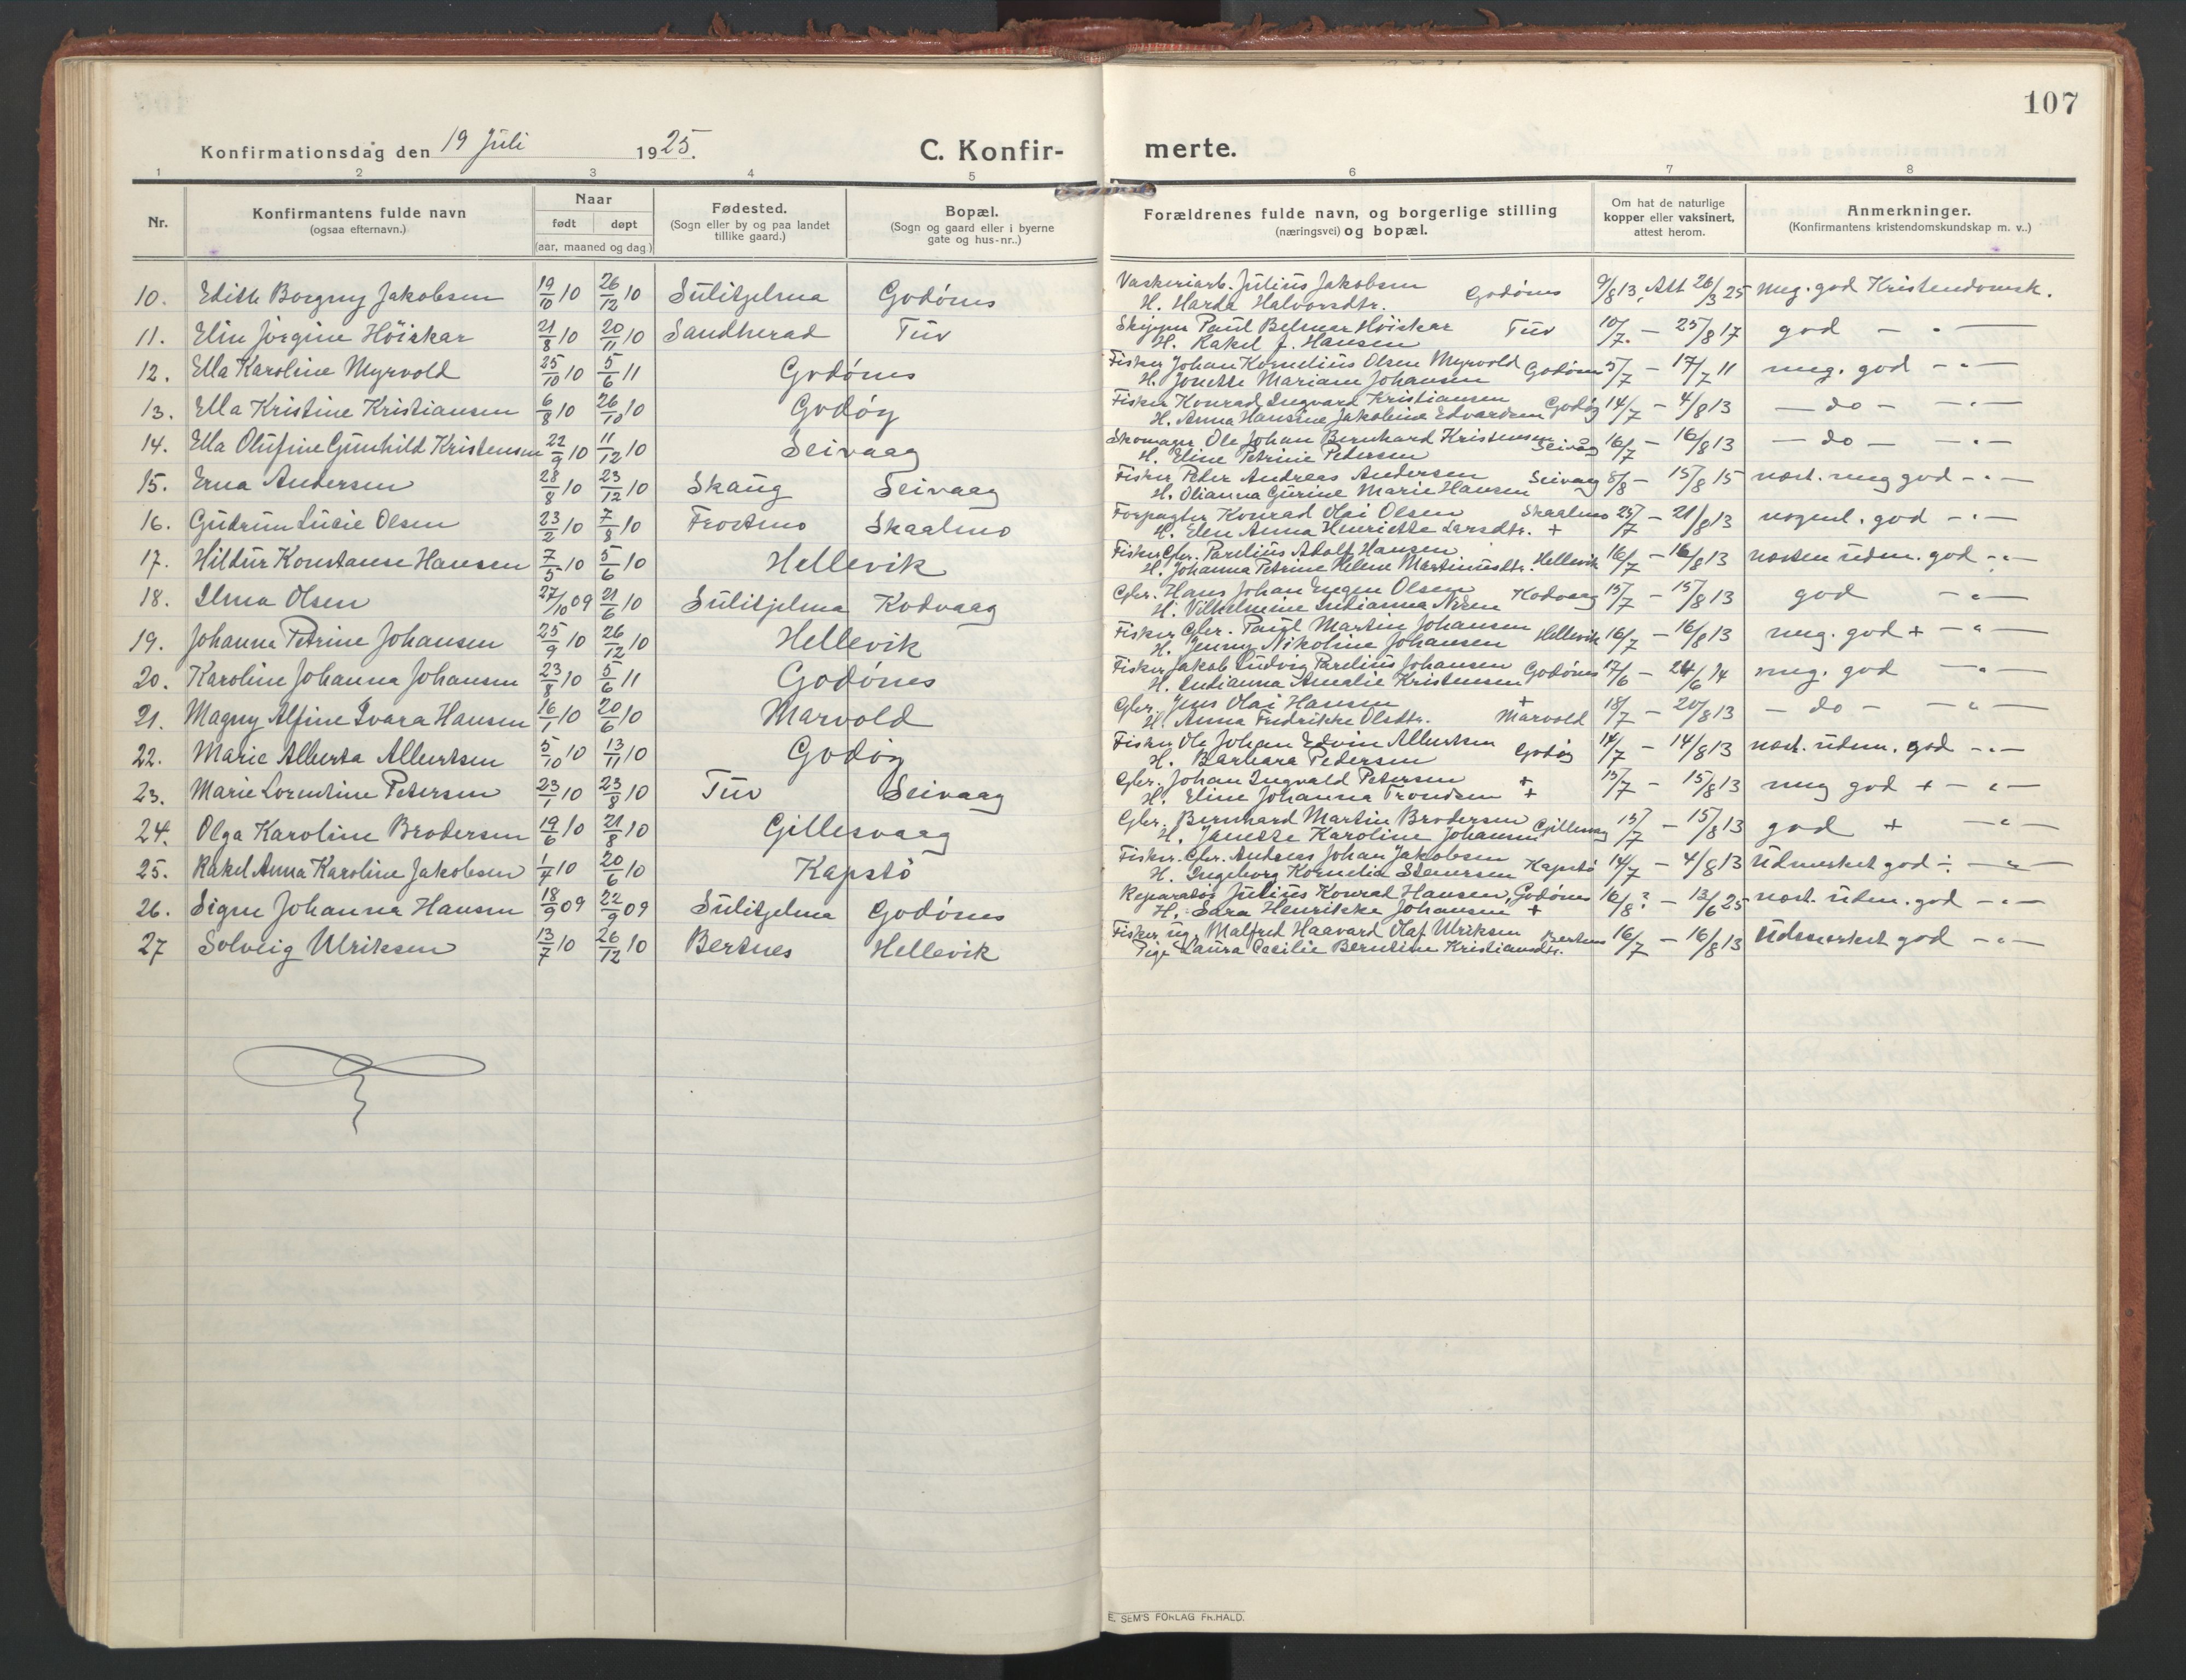 107
Konfirmationsdag den 19 Juli 1925. C. Konfir- merte.
1 2 3 4 5 6 7 8
Nr. Konfirmantens fulde navn (ogsaa efternavn.) Naar født døpt (aar, maaned og dag.) Fødested. (Sogn eller by og paa landet tillike gaard.) Bopæl. (Sogn og gaard eller i byerne gate og hus-nr..) Forældrenes fulde navn, og borgerlige stilling (næringsvei) og bopæl. Om hat de naturlige kopper eller vaksinert, attest herom. Anmerkninger. (Konfirmantens kristendomskundskap m. v..)
10. Edith Borgny Jakobsen 19/10 10 26/12 10 Sulitjelma Godönes Vaskeriarb. Julius Jakobsen Godönes 9/8 13, Att 26/3 25 meg. god Kristendomsk.
H. Harda Halvorsdtr.
11. Elin Jörgine Höiskar 21/8 10 20/11 10 Sandherad Tuv Skipper Paul Belmar Höiskar Tuv 10/7. — 25/8 17 god — " —
H. Rakel J. Hansen
12. Ella Karoline Myrvold 25/10 10 5/6 11 Godönes Fisker Johan Kornelius Olsen Myrvold Godönes 5/7 — 17/7 11 meg. god — " —
H. Jonette Mariane Johansen
13. Ella Kristine Kristiansen 6/8 10 26/10 10 Godöy Fisker Konrad Ingvard Kristiansen Godöy 14/7 — 4/8 13 — do — — " —
H. Anna Hansine Jakobine Edvardsen
14. Ella Olufine Gunhild Kristensen 22/9 10 11/12 10 Seivaag Skomager Ole Johan Bernhard Kristensen Seivåg 16/7 — 16/8 13 — do — — " —
H. Eline Petrine Petersen
15. Erna Andersen 28/8 10 23/12 10 Skaug Seivaag Fisker Peter Andreas Andersen Seivaag 5/8 — 15/8 15 næst. meg god — " —
H. Olianna Gurine Marie Hansen
16. Gudrun Lucie Olsen 23/2 10 7/8 10 Frostmo Skaalmo Forpagter Konrad Olai Olsen Skaalmo 25/7 — 21/8 13 nogenl. god — " —
H. Elen Anna Henriette Larsdtr. +
17. Hildur Konstanse Hansen 7/5 10 5/6 10 Hellevik Fisker Gbr. Parelius Adolf Hansen Hellevik 16/7 — 16/8 13 næsten udm. god — " —
H. Johanna Petrine Helene Martinusdtr.
18. Ilma Olsen 27/10 09 21/6 10 Sulitjelma Kodvaag Gbr. Hans Johan Eugen Olsen Kodvaag 15/7 — 15/8 13 god — " —
H. Vilhelmine Indianna
19. Johanna Petrine Johansen 25/9 10 26/12 10 Hellevik Fisker Gbr. Paul Martin Johansen Hellevik 16/7 — 16/8 13 meg. god + — " —
H. Jenny Nikoline Johansen
20. Karoline Johanna Johansen 23/8 10 5/6 11 Godönes Fisker Jakob Ludvig Parelius Johansen Godönes 17/6 — 24/6 14 meg. god — " —
H. Indianna Amalie Kristensen
21. Magny Alfine Ivara Hansen 16/1 10 20/6 10 Marvold Gbr. Jens Olai Hansen + Marvold 18/7 — 20/8 13 — do — — " —
H. Anna Fredrikke Olsdtr.
22. Marie Alberta Albertsen 5/10 10 13/11 10 Godöy Fisker Ole Johan Edvin Albertsen Godöy 14/7 — 14/8 13 næst. udm. god — " —
H. Barbara Pedersen
23. Marie Lorentine Petersen 23/1 10 23/8 10 Tuv Seivaag Gbr. Johan Ingvald Petersen + 15/7 — 15/8 13 meg god + — " —
H. Eline Johanna Trondsen +
24. Olga Karoline Brodersen 19/6 10 21/8 10 Gillesvaag Gbr. Bernhard Martin Brodersen Gillesvag 15/7 — 15/8 13 god + — " —
H. Janette Karoline Johansen
25. Rakel Anna Karoline Jakobsen 1/4 10 20/6 10 Kapstö Fisker. Gbr. Andreas Johan Jakobsen Kapstö 14/7 — 4/8 13 Udmerket god ÷ — " —
H. Ingeborg Kornelia Stenersen
26. Signe Johanna Hansen 18/9 09 22/9 09 Sulitjelma Godönes Reparatör Julius Konrad Hansen, Godönes 16/8 ? — 13/6 25 næst. udm. god — " —
H. Sara Henrikke Johansen +
27 Solveig Ulriksen 13/7 10 26/12 10 Bertnes Hellevik Fisker ug. Malfred Haavard Olaf Ulriksen Bertnes 16/7 — 16/8 13 Udmerket god — " —
Pige Laura Cecilie Berntine Kristiansdtr.
E. SEM'S FORLAG FR.HALD.